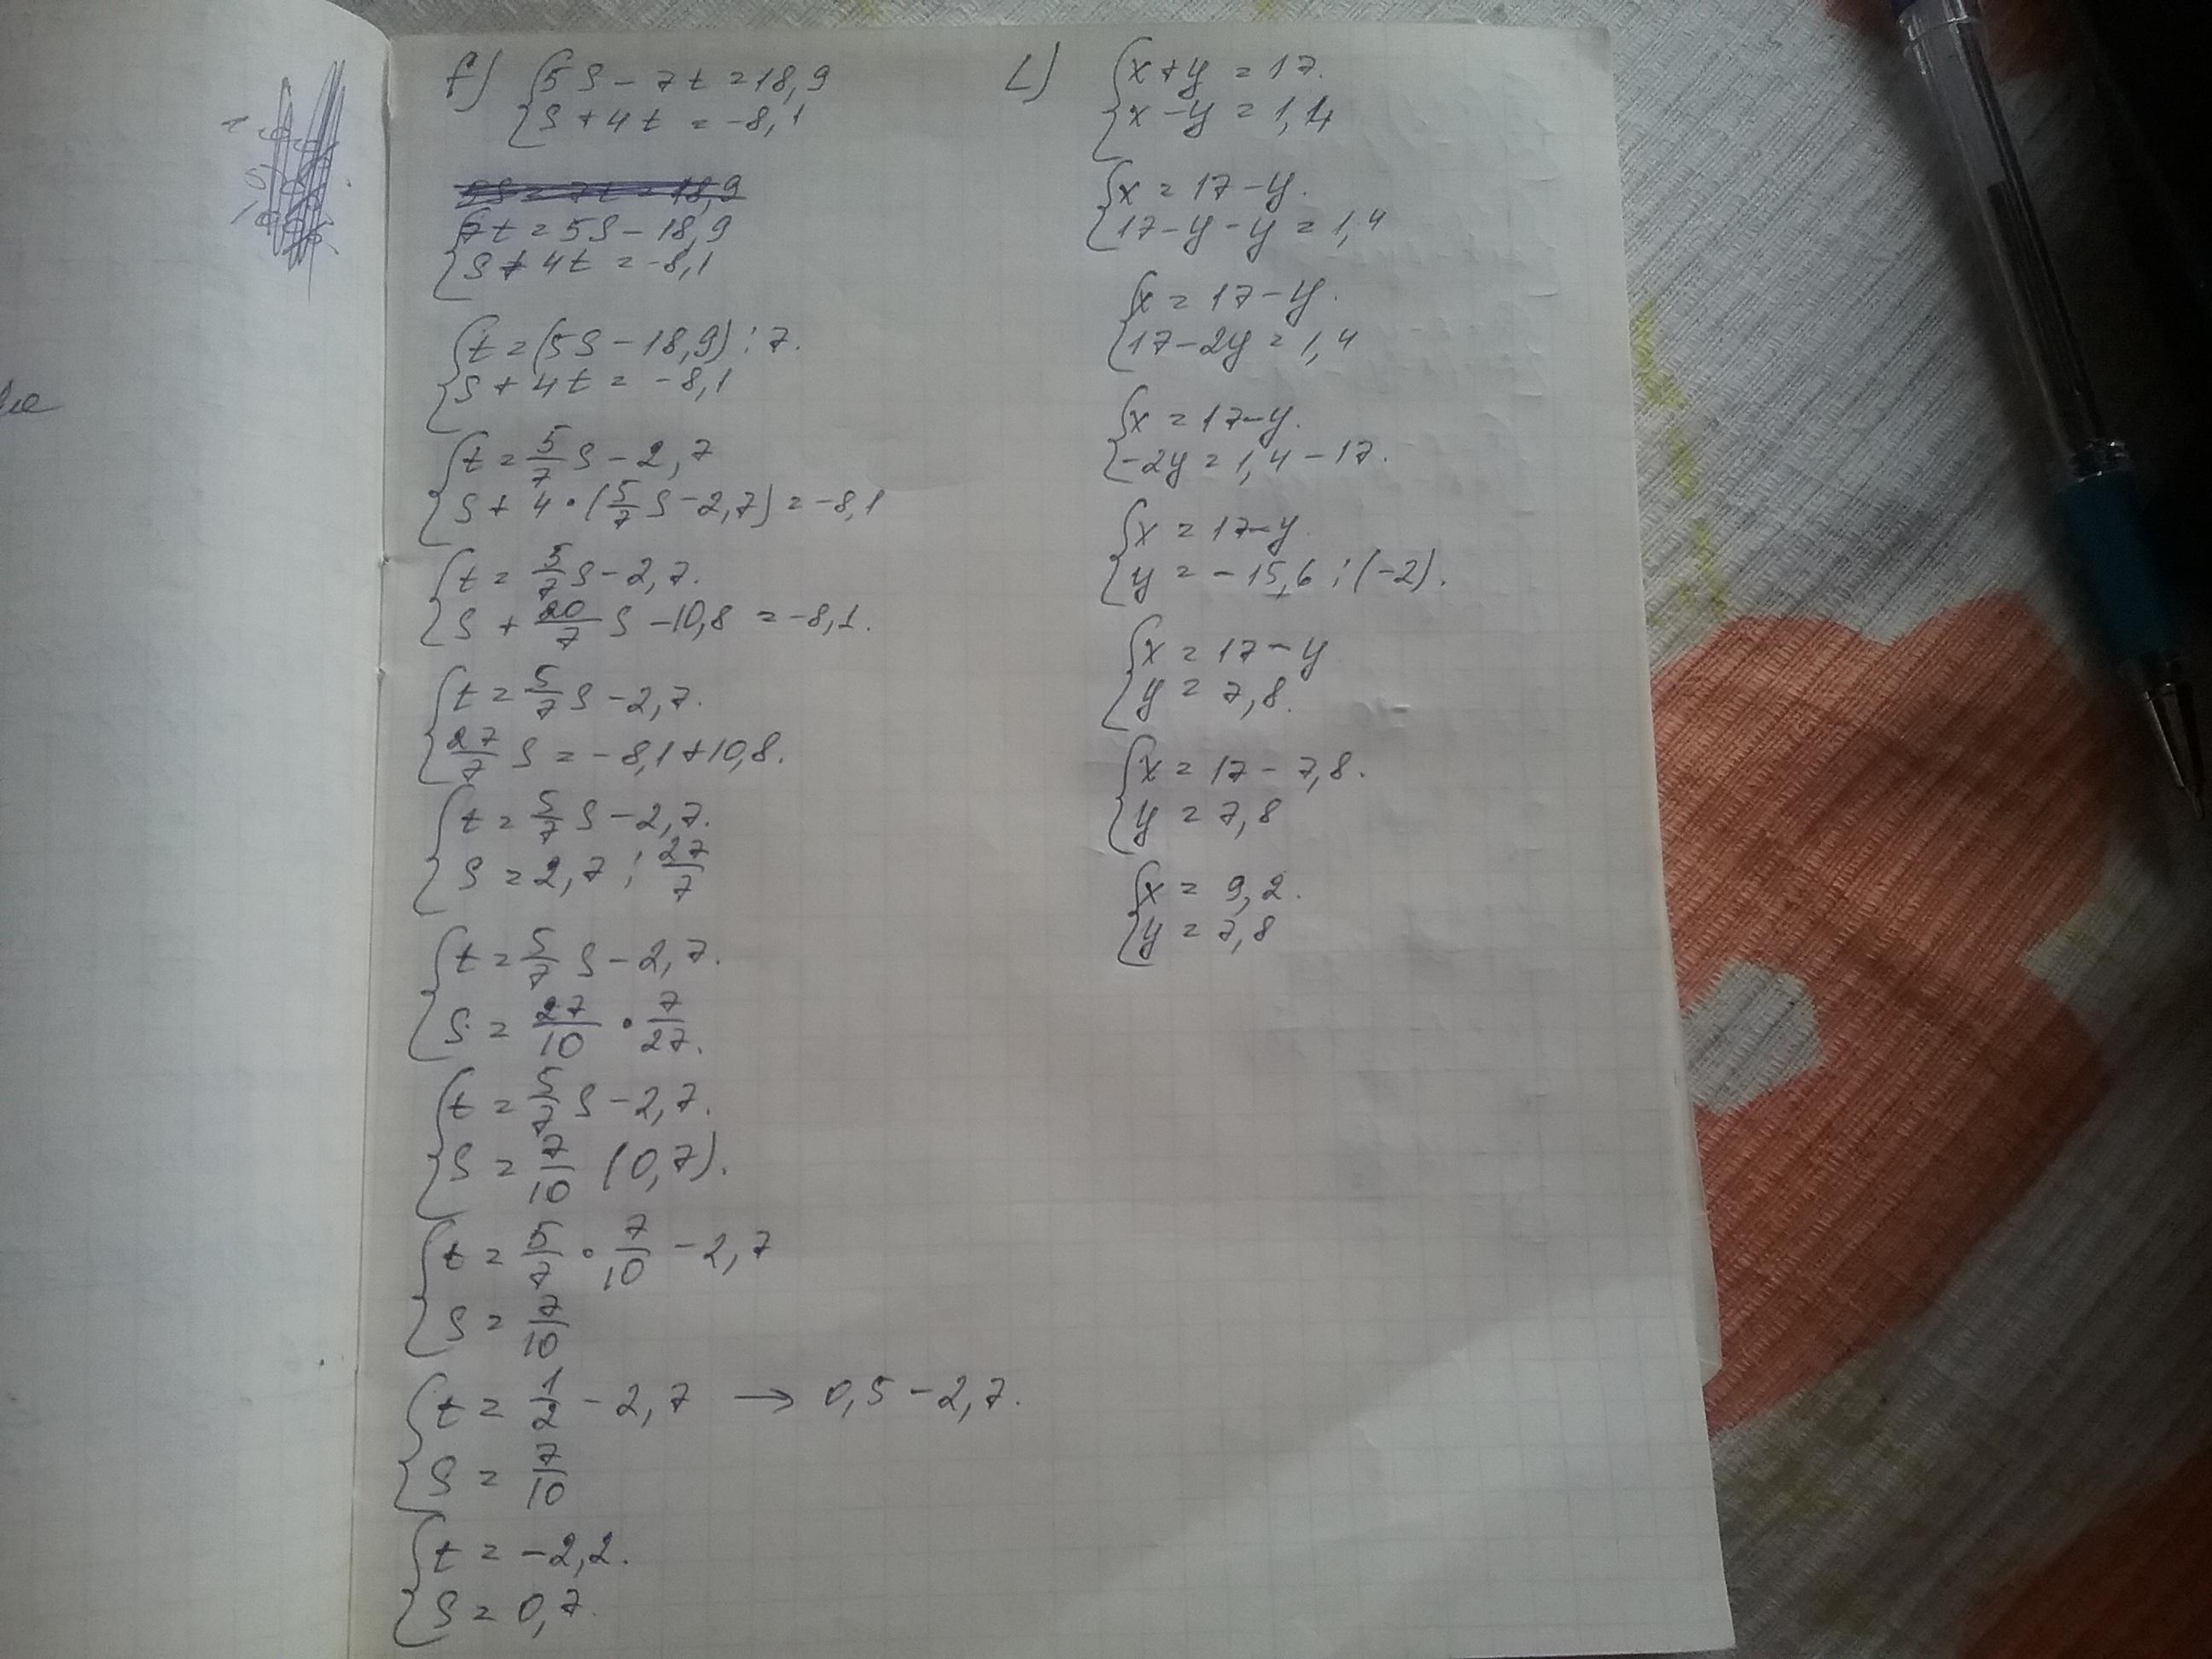 f) { 5S - 7t = 18,9
{ S + 4t = -8,1
{ 7t = 5S - 18,9
{ S + 4t = -8,1
{ t = (5S - 18,9) : 7.
{ S + 4t = -8,1
{ t = 5/7 S - 2,7
{ S + 4 · (5/7 S - 2,7) = -8,1
{ t = 5/7 S - 2,7.
{ S + 20/7 S - 10,8 = -8,1.
{ t = 5/7 S - 2,7.
{ 27/7 S = -8,1 + 10,8.
{ t = 5/7 S - 2,7.
{ S = 2,7 : 27/7
{ t = 5/7 S - 2,7.
{ S = 27/10 · 7/27.
{ t = 5/7 S - 2,7.
{ S = 7/10 (0,7).
{ t = 5/7 · 7/10 - 2,7
{ S = 7/10
{ t = 1/2 - 2,7 → 0,5 - 2,7.
{ S = 7/10
{ t = -2,2.
{ S = 0,7.
L) { x + y = 17.
{ x - y = 1,4
{ x = 17 - y.
{ 17 - y - y = 1,4
{ x = 17 - y.
{ 17 - 2y = 1,4
{ x = 17 - y.
{ -2y = 1,4 - 17.
{ x = 17 - y.
{ y = -15,6 : (-2).
{ x = 17 - y
{ y = 7,8.
{ x = 17 - 7,8.
{ y = 7,8
{ x = 9,2.
{ y = 7,8